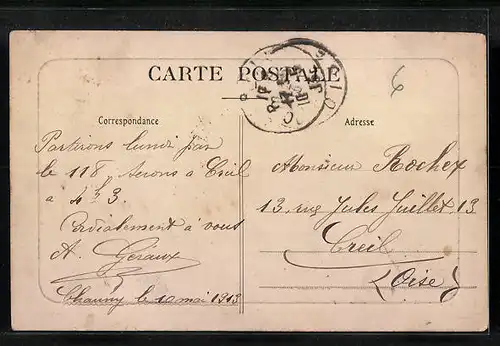 CARTE POSTALE
Correspondance
Partirons lundi par
le 118, serons à Creil
à 4h 3.
Cordialement à vous
A. Géraux
Chauny le 10 mai 1913
Adresse
Monsieur Rochex
13, rue Jules Juillet 13
Creil
(Oise)
6
OISE